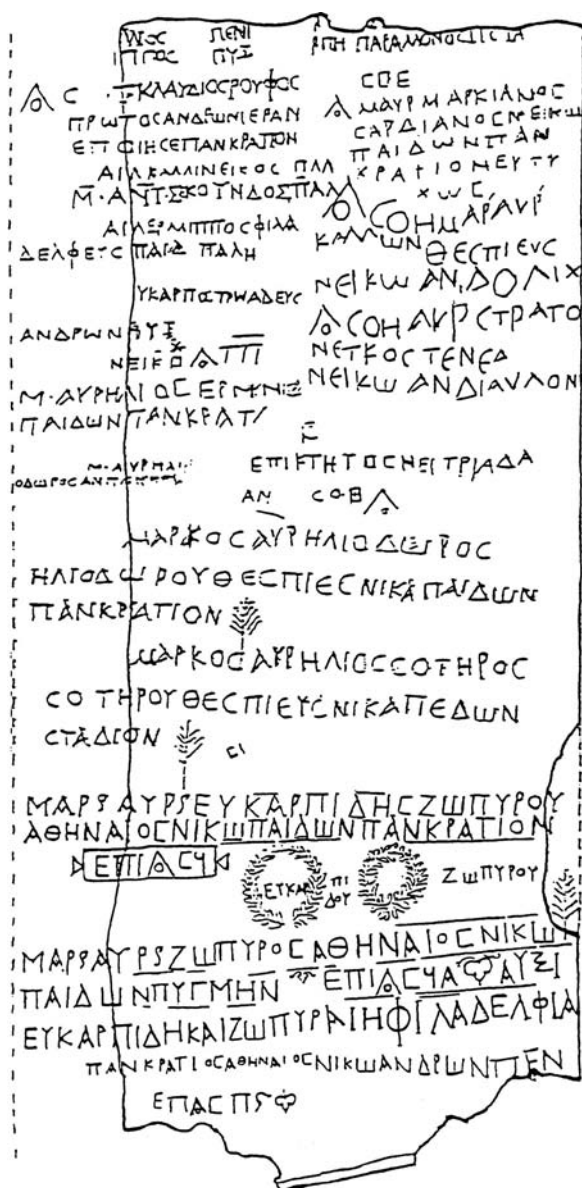 ΠΕΝΙ
ΠΥΞ
ΠΑΡΑΜΟΝΟC
ΚΛΑΥΔΙΟCΡΟΥΦΟC
ΠΡΩΤΟCΑΝΔΡΩΝΙΕΡΑΝ
ΕΠΟΙΗCΕΠΑΝΚΡΑΤΙΟΝ
ΑΙΛΚΑΛΛΙΝΕΙΚΟC ΠΑΛ
Μ·ΑΝΤ·ΣΚΟΥΝΔΟΣΠΑΛ
ΑΙΛΕΡΜΙΠΠΟCΦΙΛΑ
ΔΕΛΦΕΥC ΠΑΙΔ ΠΑΛΗ
ΥΚΑΡΠΟCΤΡΩΑΔΕΥC
ΑΝΔΡΩΝ ΠΥΞ
ΝΕΙΚΩ
Μ·ΑΥΡΗΛΙΟC ΕΡΜ
ΠΑΙΔΩΝ ΠΑΝΚΡΑΤΙ
Μ·ΑΥΡΗΛΙ
ΟΔΩΡΟC
CΟΕ
Μ ΑΥΡ ΜΑΡΚΙΑΝΟC
CΑΡΔΙΑΝΟC ΝΕΙΚΩ
ΠΑΙΔΩΝ ΠΑΝ
ΚΡΑΤΙΟΝ ΕΥΤΥ
ΧΩC
CΟΗ ΜΑΡ ΑΥΡ
ΚΑΛΛΩΝ ΘΕCΠΙΕΥC
ΝΕΙΚΩ ΑΝ·ΔΟΛΙΧ
CΟΗ ΑΥΡ CΤΡΑΤΟ
ΝΕΙΚΟC ΤΕΝΕΔ
ΝΕΙΚΩ ΑΝ ΔΙΑΥΛΟΝ
ΕΠΙΚΤΗΤΟC ΝΕΙ ΤΡΙΑΔΑ
ΑΝ CΟΒ
ΜΑΡΚΟCΑΥΡΗΛΙΟΔΩΡΟC
ΗΛΙΟΔΩΡΟΥΘΕCΠΙΕCΝΙΚΑΠΑΙΔΩΝ
ΠΑΝΚΡΑΤΙΟΝ
ΜΑΡΚΟCΑΥΡΗΛΙΟCCΟΤΗΡΟC
CΟΤΗΡΟΥΘΕCΠΙΕΥCΝΙΚΑΠΕΔΩΝ
CΤΑΔΙΟΝ
ΜΑΡSΑΥΡSΕΥΚΑΡΠΙΔΗCΖΩΠΥΡΟΥ
ΑΘΗΝΑΙΟCΝΙΚΩΠΑΙΔΩΝΠΑΝΚΡΑΤΙΟΝ
ΕΠΙ
ΕΥΚΑΡ ΠΙ ΖΩΠΥΡΟΥ
ΔΟΥ
ΜΑΡSΑΥΡSΖΩΠΥΡΟCΑΘΗΝΑΙΟCΝΙΚΩ
ΠΑΙΔΩΝΠΥΓΜΗΝ ΑΥΞΙ
ΕΥΚΑΡΠΙΔΗΚΑΙΖΩΠΥΡΑΙΗΦΙΛΑΔΕΛΦΙΑ
ΠΑΝΚΡΑΤΙΟCΑΘΗΝΑΙΟCΝΙΚΩΑΝΔΡΩΝΠΕΝ
ΕΠΑCΠS